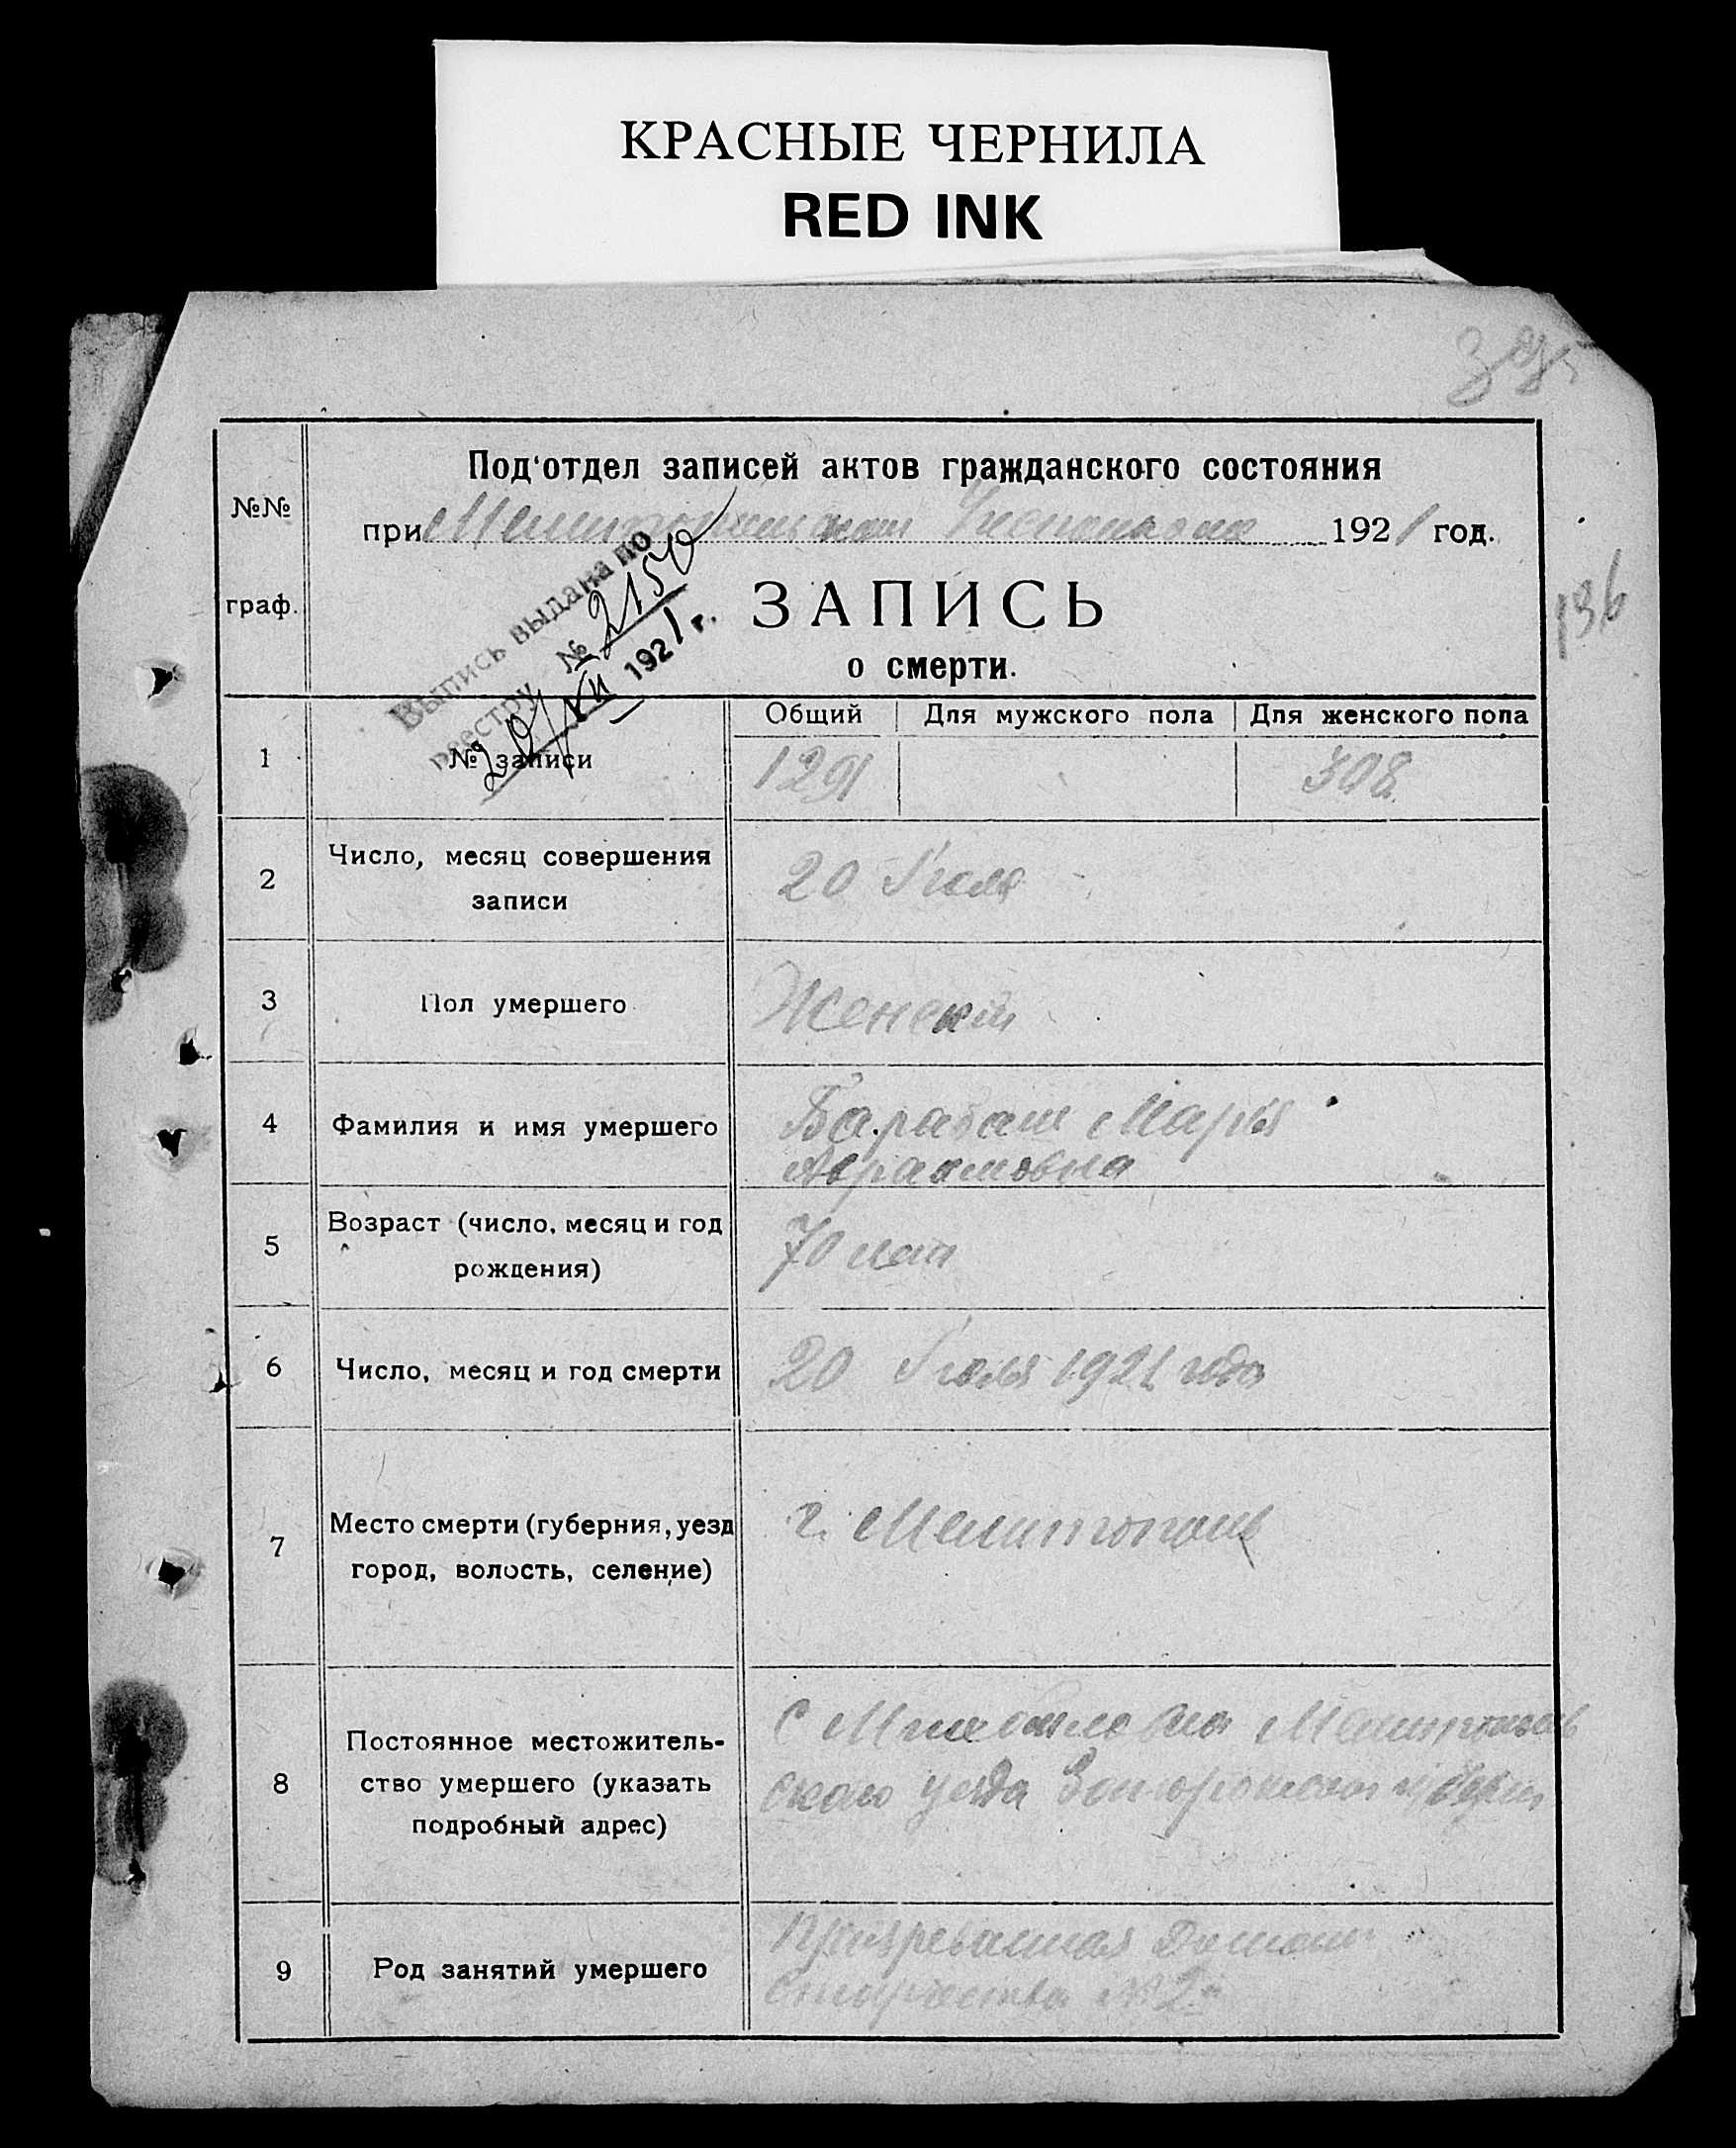 КРАСНЫЕ ЧЕРНИЛА
RED INK
Под'отдел записей актов гражданского состояния
№№
при 1921 год.
граф.
Выпись выдана по
реестру № 2150
XII 1921 г.
ЗАПИСЬ
о смерти.
136
Общий Для мужского пола Для женского пола
1 № записи 1291 308
2 Число, месяц совершения записи 20 Июля
3 Пол умершего Женский
4 Фамилия и имя умершего Барабаш Марья
Авраамовна
5 Возраст (число, месяц и год рождения) 70 лет
6 Число, месяц и год смерти 20 Июля 1921 года
7 Место смерти (губерния, уезд город, волость, селение) г. Мелитополь
8 Постоянное местожитель-
ство умершего (указать
подробный адрес)
с Михайловка Мелитополь
ского уезда Запорожской губерн
9 Род занятий умершего Призреваемая Домом
Старчества № 2